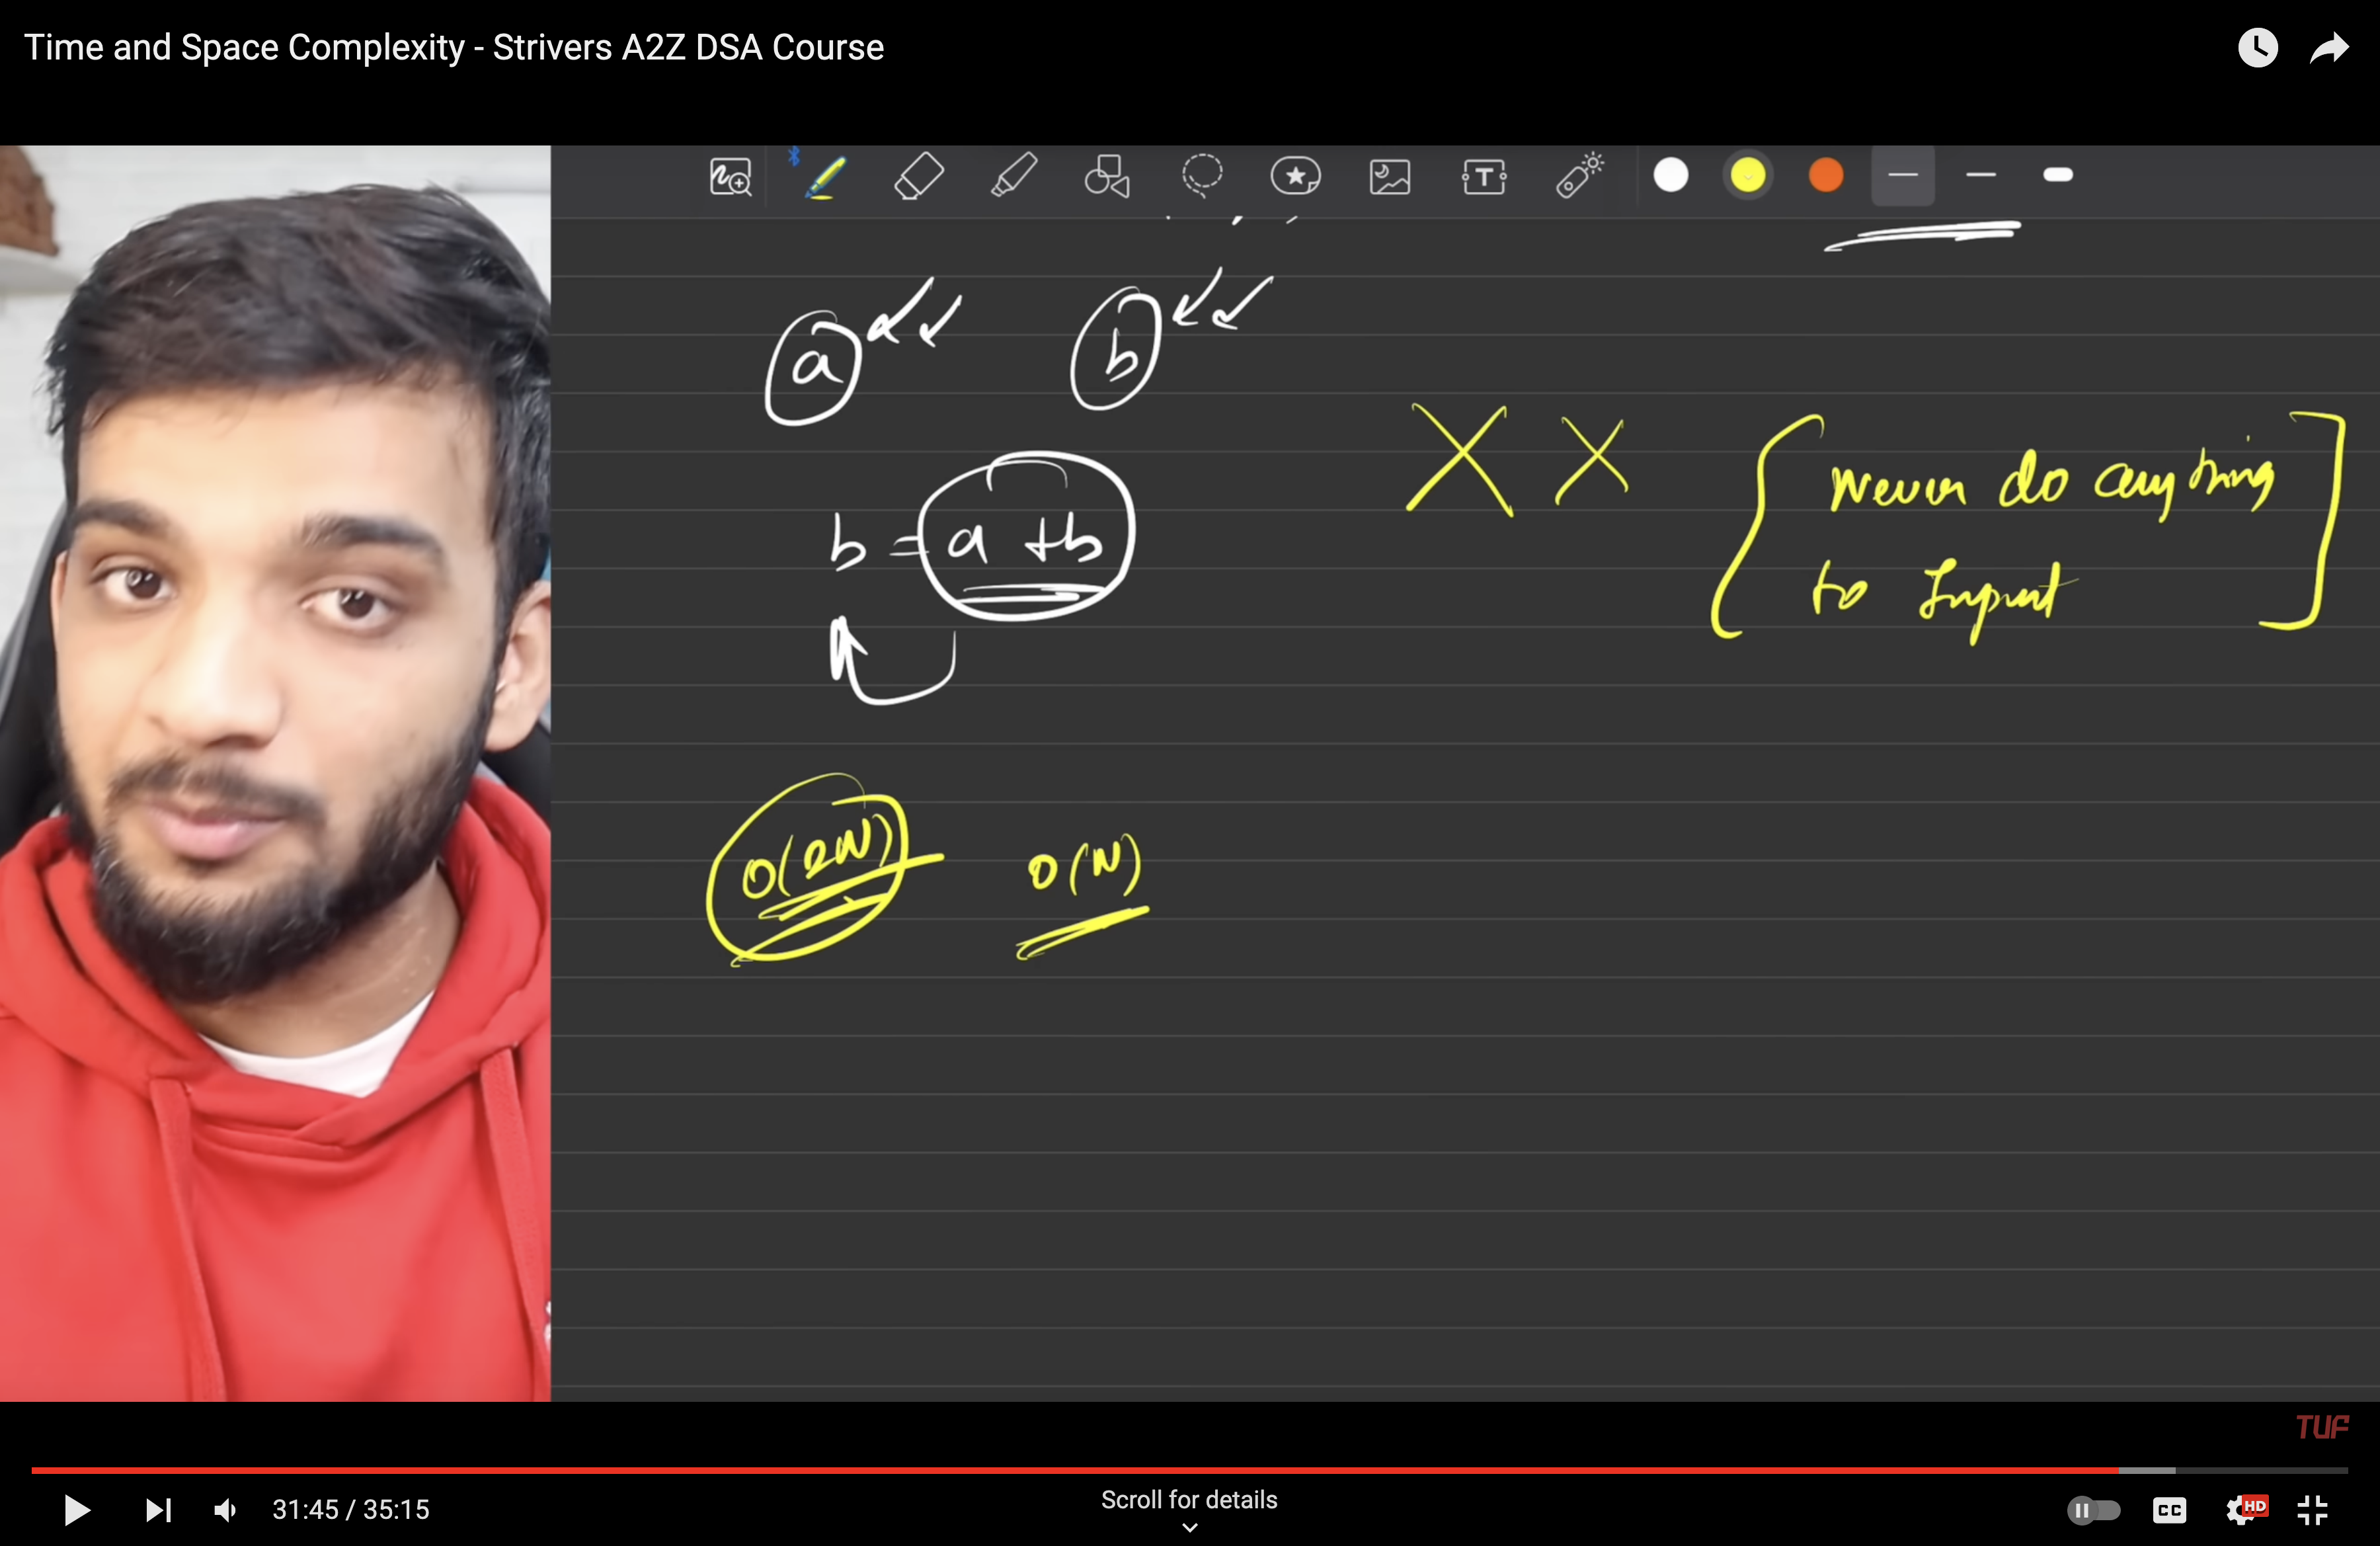 Time and Space Complexity - Strivers A2Z DSA Course
T
a b
b = a + b
X X
Never do anything
to Input
O(2N) O(N)
TUF
31:45 / 35:15
Scroll for details
CC
HD